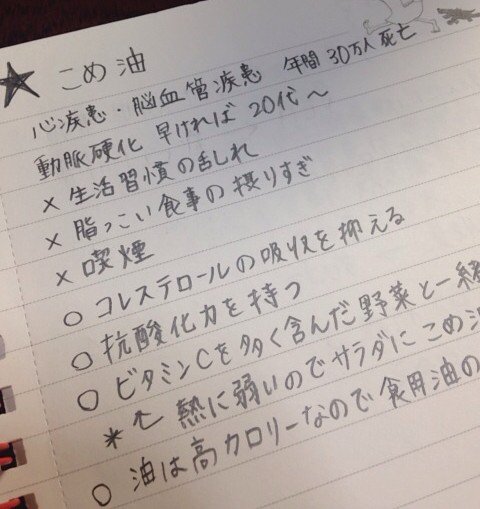 ★ こめ油
心疾患・脳血管疾患 年間30万人死亡
動脈硬化 早ければ20代～
× 生活習慣の乱れ
× 脂っこい食事の摂りすぎ
× 喫煙
○ コレステロールの吸収を抑える
○ 抗酸化力を持つ
○ ビタミンCを多く含んだ野菜と一緒
＊↑ 熱に弱いのでサラダにこめ油
○ 油は高カロリーなので食用油の